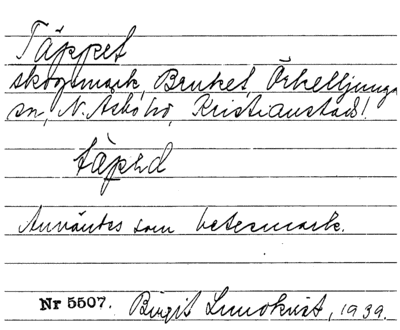 Täppet
skogsmark, Bruket, Örkelljunga
sn, N. Åsbo hd, Kristianstads l.
täpəd
Användes som betesmark.
Nr 5507. Birgit Lundkvist, 1939.